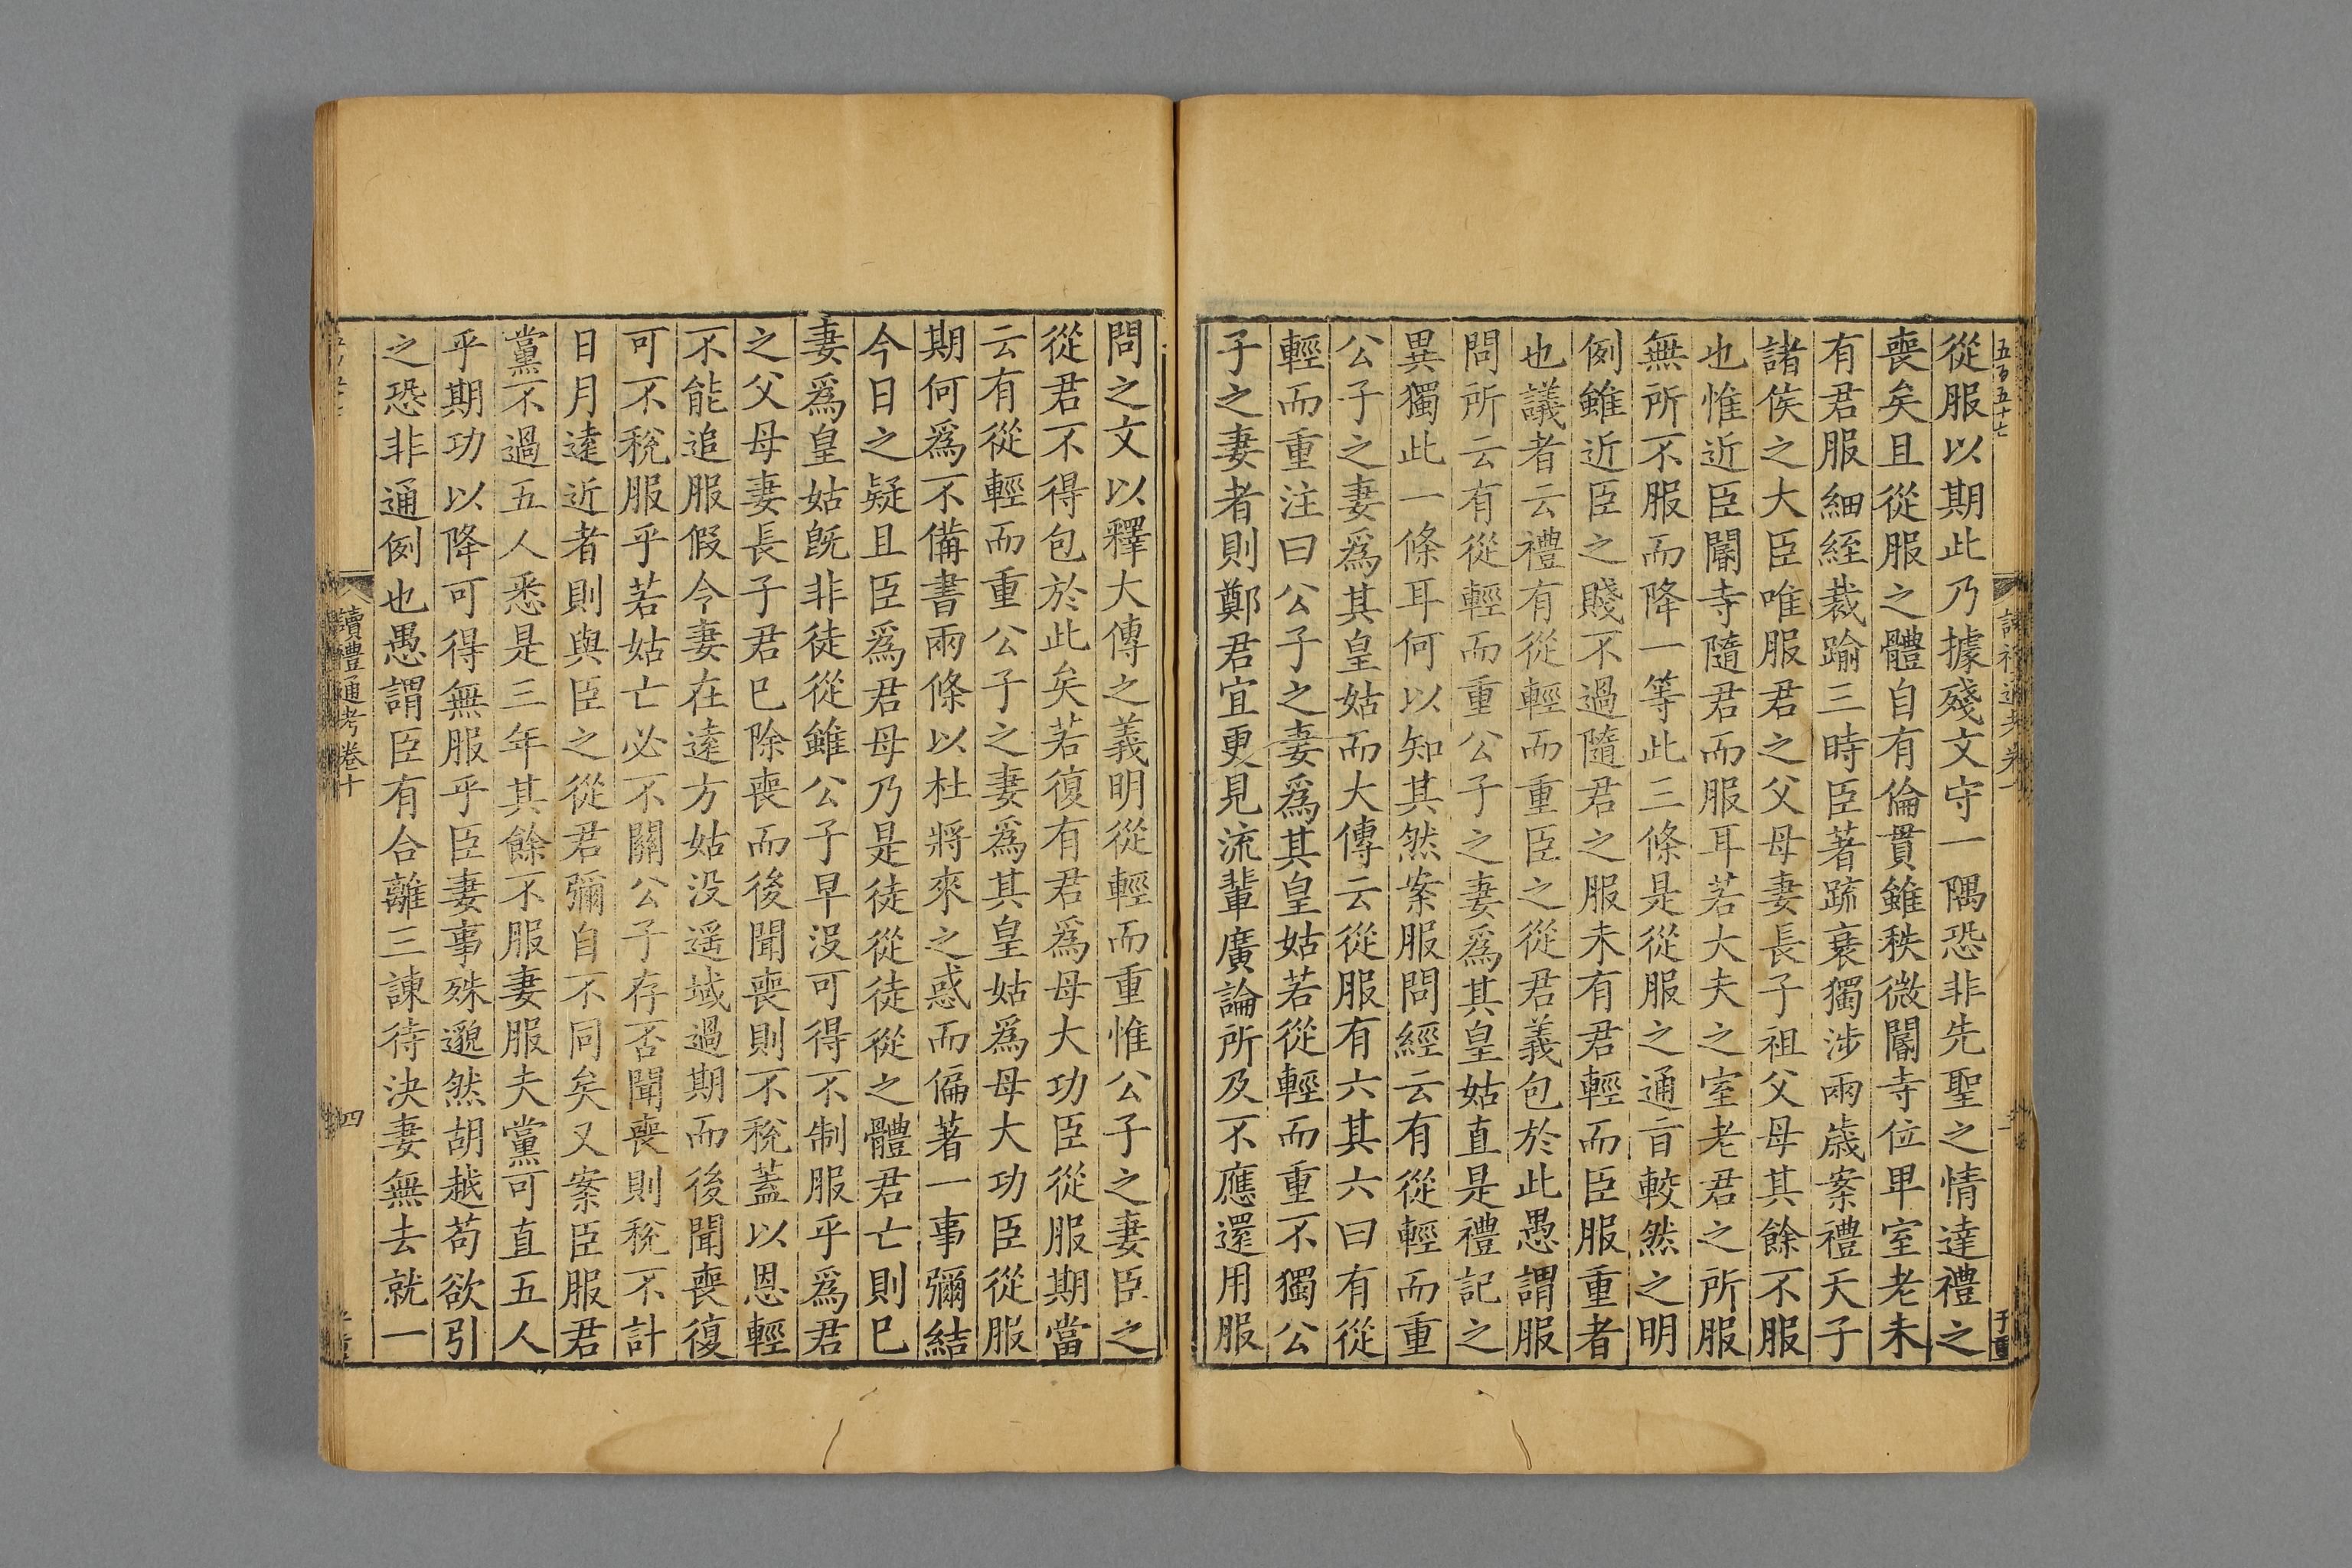 五百五十七
從服以期此乃據殘文守一隅恐非先聖之情達禮之
喪矣且從服之體自有倫貫雖秩微閽寺位卑室老未
有君服細絰裁踰三時臣著䟽衰獨涉兩歲案禮天子
諸侯之大臣唯服君之父母妻長子祖父母其餘不服
也惟近臣閽寺隨君而服耳若大夫之室老君之所服
無所不服而降一等此三條是從服之通㫖較然之明
例雖近臣之賤不過隨君之服未有君輕而臣服重者
也議者云禮有從輕而重臣之從君義包於此愚謂服
問所云有從輕而重公子之妻爲其皇姑直是禮記之
異獨此一條耳何以知其然案服問經云有從輕而重
公子之妻爲其皇姑而大傳云從服有六其六曰有從
輕而重注曰公子之妻爲其皇姑若從輕而重不獨公
子之妻者則鄭君宜更見流輩廣論所及不應還用服
問之文以釋大傳之義明從輕而重惟公子之妻臣之
從君不得包於此矣若復有君爲母大功臣從服期當
云有從輕而重公子之妻爲其皇姑爲母大功臣從服
期何爲不備書兩條以杜將來之惑而偏著一事彌結
今日之疑且臣爲君母乃是徒從徒從之體君亡則已
妻爲皇姑旣非徒從雖公子早没可得不制服乎爲君
之父母妻長子君已除喪而後聞喪則不稅蓋以恩輕
不能追服假令妻在逺方姑没遥域過期而後聞喪復
可不稅服乎若姑亡必不關公子存否聞喪則稅不計
日月逺近者則與臣之從君彌自不同矣又案臣服君
黨不過五人悉是三年其餘不服妻服夫黨可直五人
乎期功以降可得無服乎臣妻事殊邈然胡越苟欲引
之恐非通例也愚謂臣有合離三諫待決妻無去就一
讀禮通考卷十
四